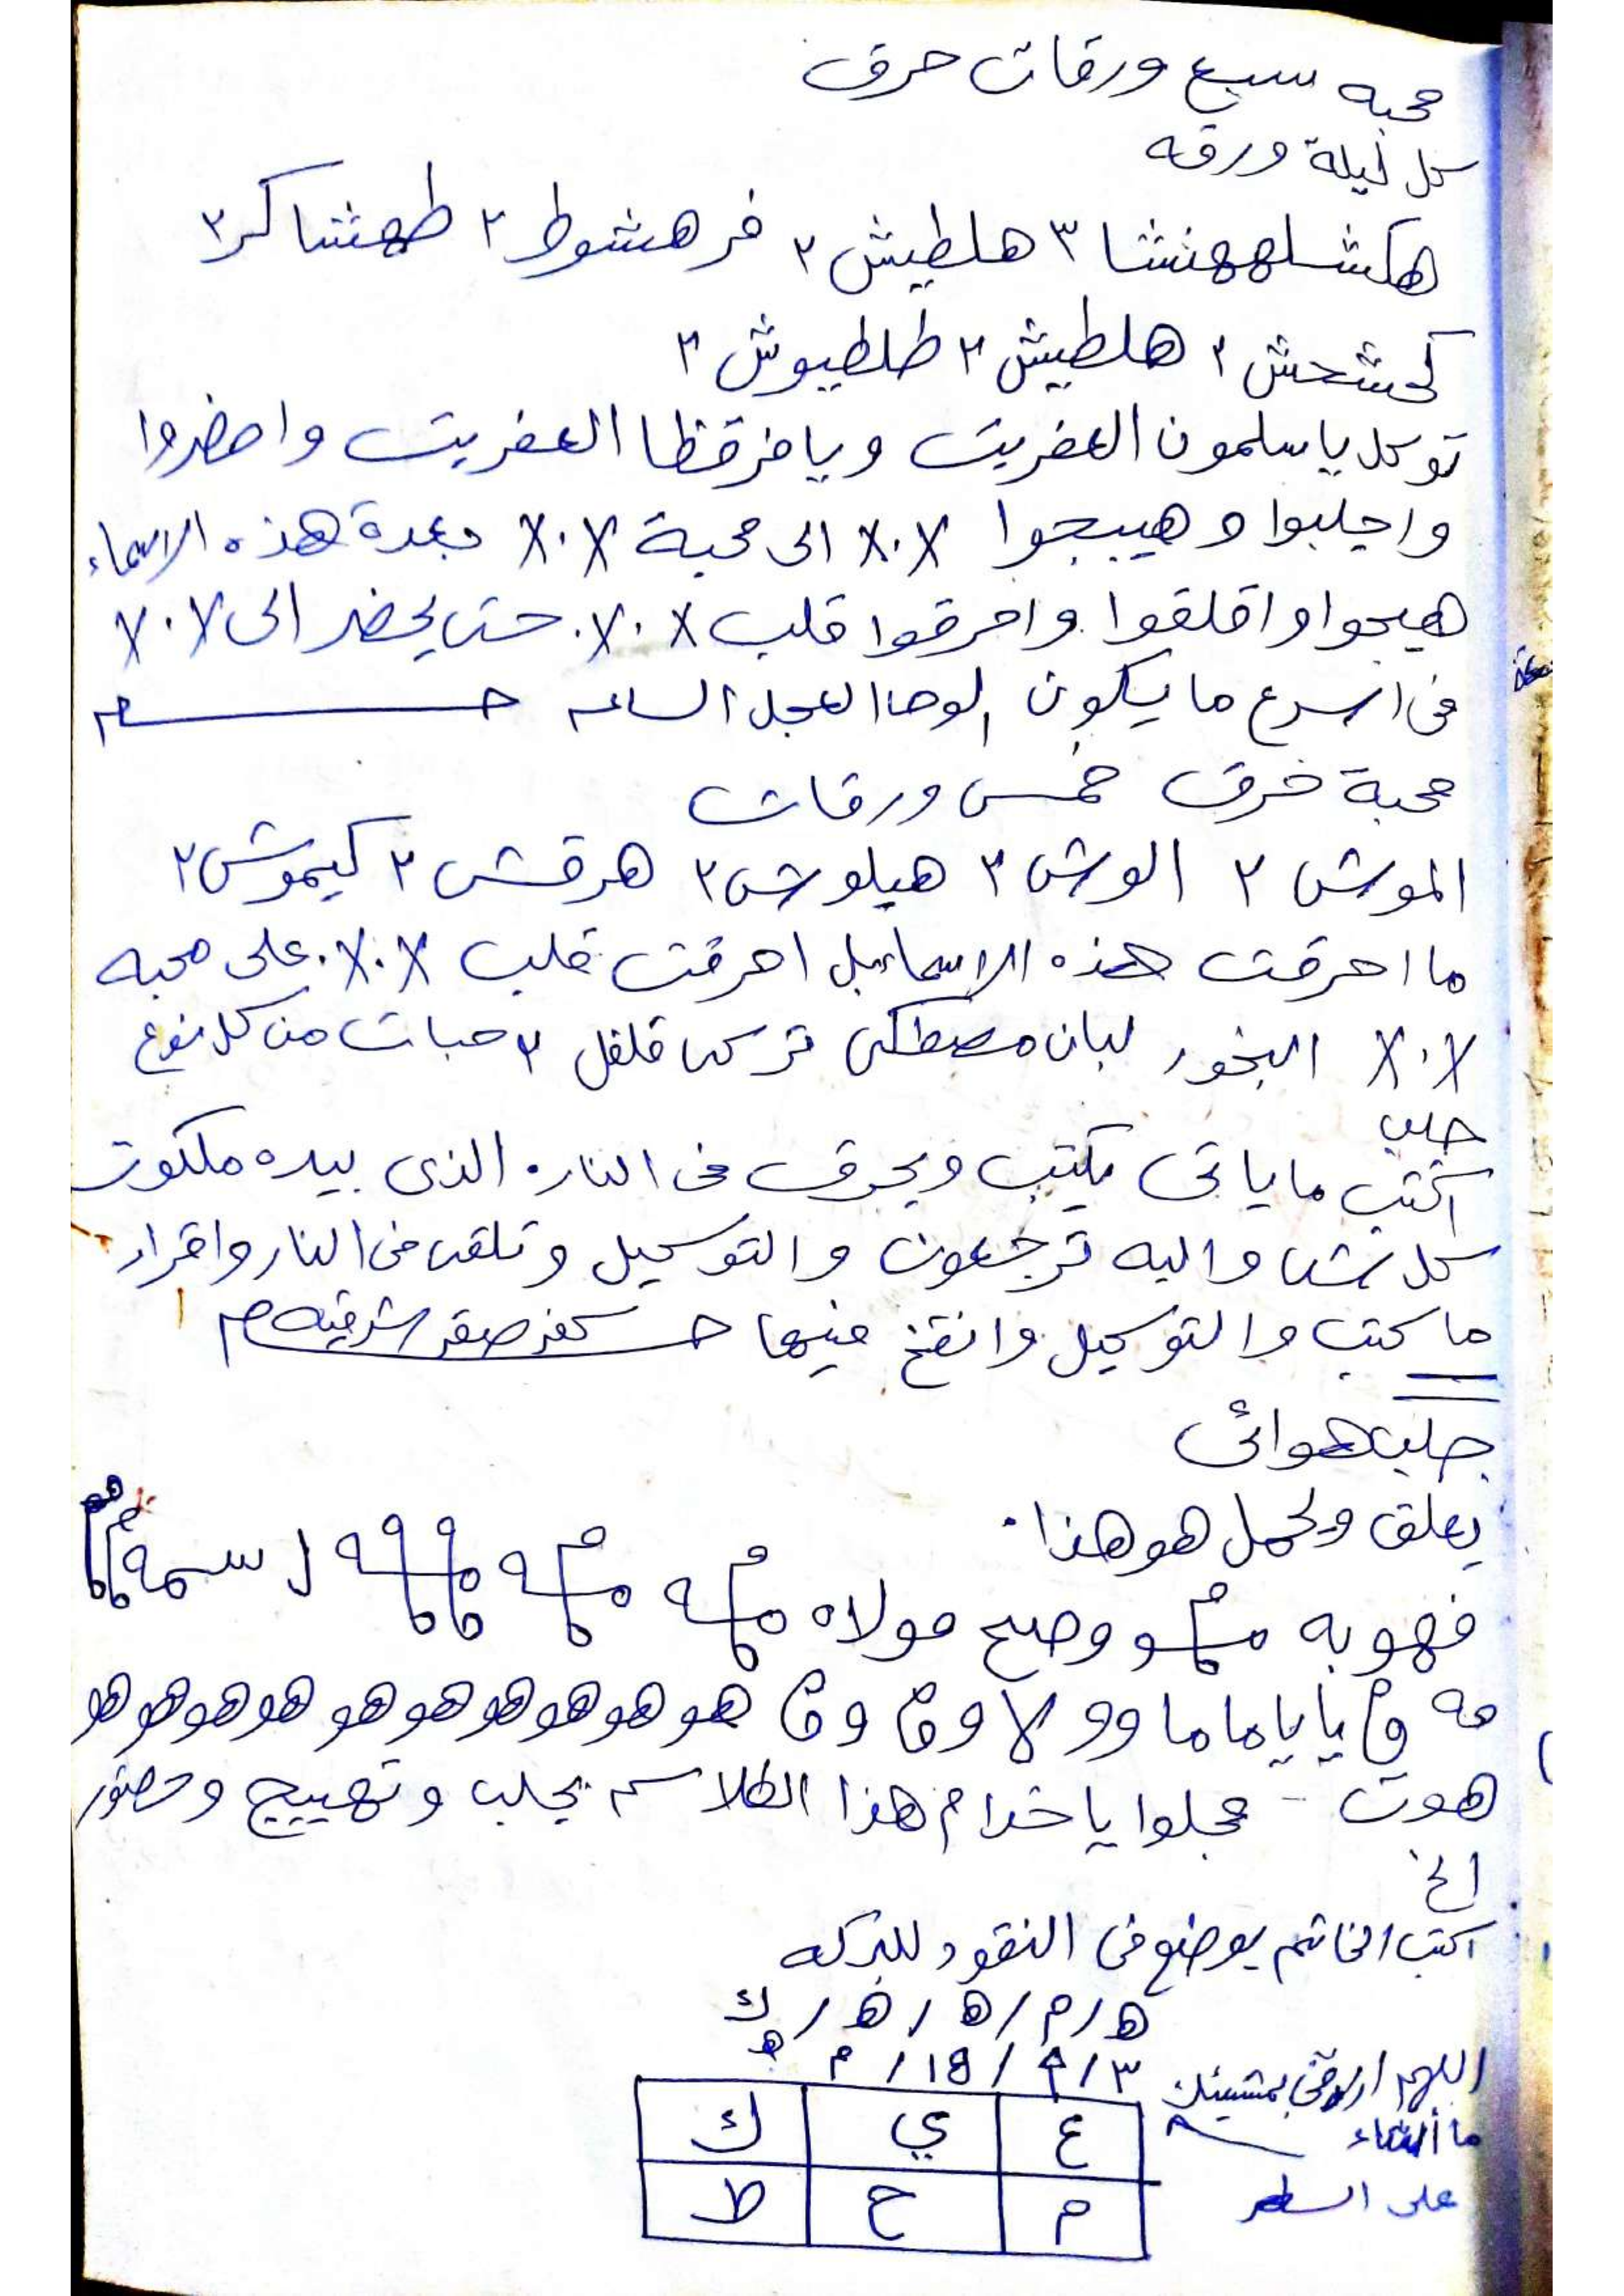 محبه سبع ورقات حرق
كل ليلة ورقه
هكشلههنشا ٣ هلطيش ٢ فرهشوط ٢ طهشاكر ٢
كحشحش ٢ هلطيش ٢ طلطيوش ٢
توكل يا سلمون العفريت ويا مزقظا العفريت واحضروا
واجلبوا وهيبجوا X.X الى محبة X.X بعدة هذه الاسماء
هيجوا واقلقوا واحرقوا قلب X.X. حتى يحضر الى X.X
فى اسرع ما يكون الوحا العجل الساعه
محبة حرق خمس ورقات
الموش ٢ الوش ٢ هيلوش ٢ هرقش ٢ كيموش ٢
ما احرقت هذه الاسماء بل احرقت قلب X.X. على محبه
X.X البخور لبان مصطكى تركى فلفل ٧ حبات من كل نوع
جلب
اكتب ما ياتى يكتب ويحرق فى النار. الذى بيده ملكوت
كل شى واليه ترجعون والتوكيل وتلقى فى النار واقراء
ما كتب والتوكيل وانفخ فيها كفر صقر شرقيه
جلب هوائى
يعلق ويحمل هو هذا.
فهو به وصح مولاه
يا يا ما ما وو لا هو هو هو هو هو هو هو هو هو
هوت - عجلوا يا خدام هذا الطلاسم بجلب وتهييج وحضور
الخ
اكتب الخاتم يوضع فى النقود للبركه
ه / م / ه / ه / ك
اللهم ارزقنى بمشيئتك
ما أشاء
على السطر
ع ي ك
م ح ط